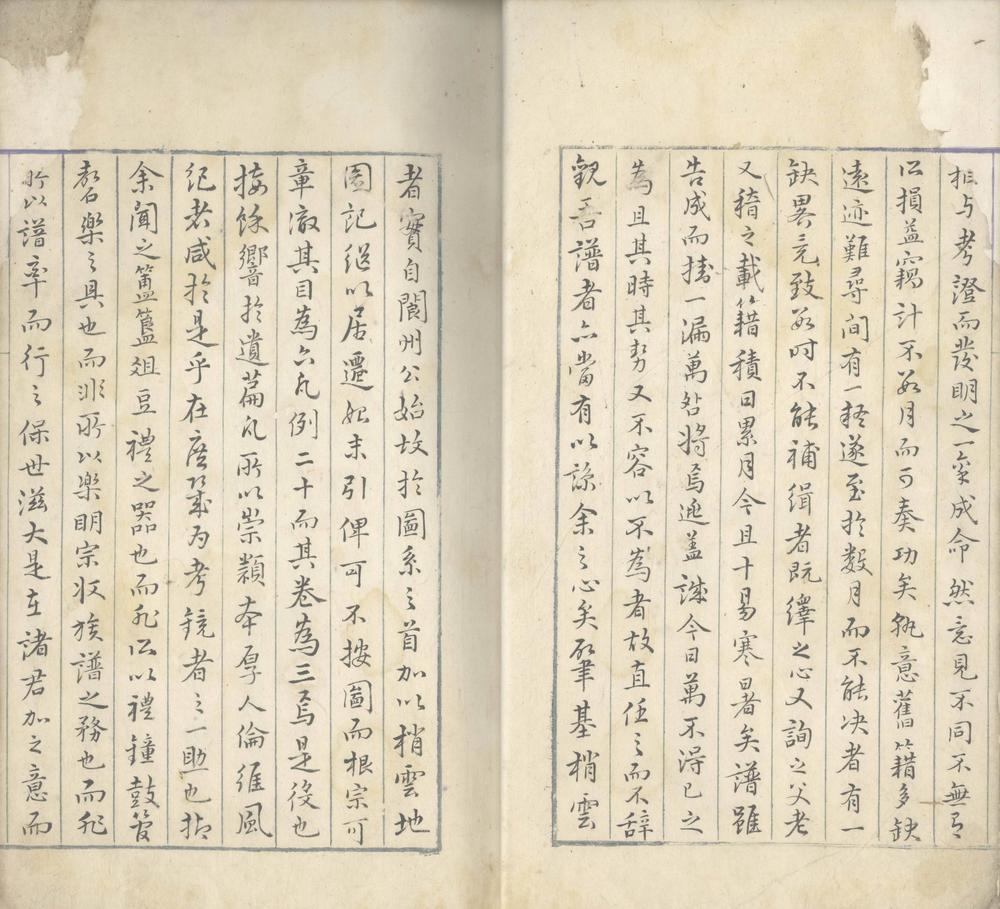 相与考證而發明之一家成命然意見不同不無有
所損益竊計不數月而可奏功矣孰意舊籍多缺
遠迹難尋间有一疑遂至於数月而不能决者有一
缺畧竟致数时不能補缉者既繹之心又詢之父老
又稽之載籍積日累月今且十易寒暑矣譜雖
告成而掛一漏萬咎將焉逃盖誠今日萬不得已之
為且其時其势又不容以不為者故直任之而不辞
觀吾譜者亦當有以諒余之心矣肇基梢雲
者實自閬州公始故於圖系之首加以梢雲地
圖記继以居遷始末引俾可不按圖而根宗可
章澈其目為六凡例二十而其卷為三焉是役也
接餘響於遺篇凡所以崇類本厚人倫維風
纪者咸於是乎在庶几或为考鏡者之一助也抑
余聞之簠簋俎豆禮之器也而非所以禮鐘鼓管
磬樂之具也而非所以樂明宗收族譜之務也而非
所以譜率而行之保世滋大是在諸君加之意而